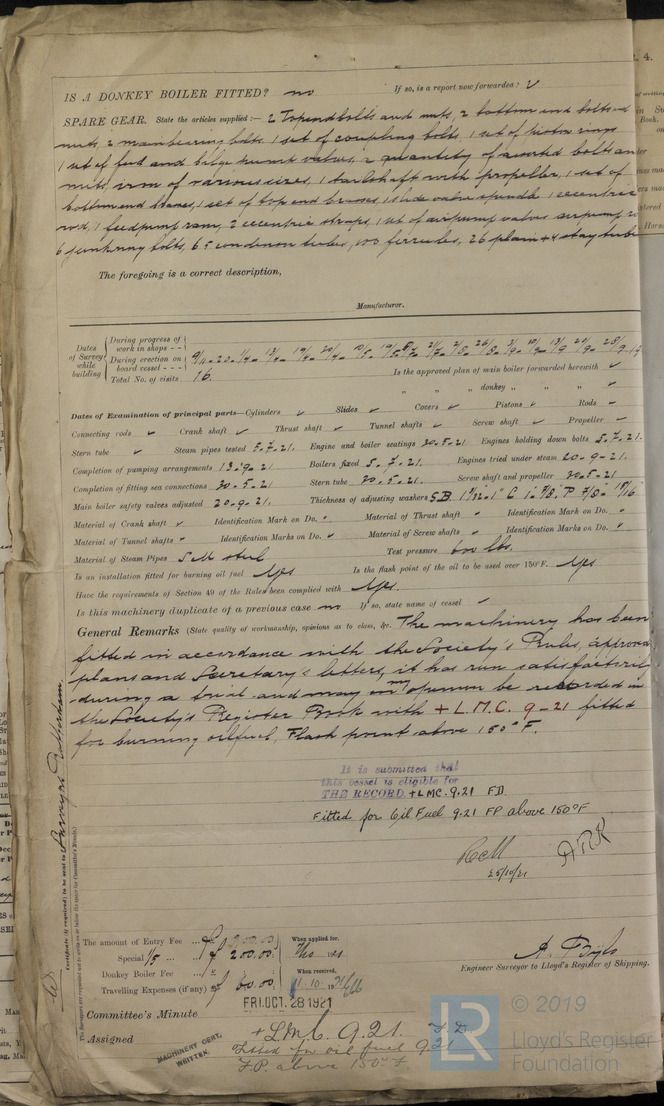 IS A DONKEY BOILER FITTED? no If so, is a report now forwarded? ✓
SPARE GEAR. State the articles supplied:— 2 Topend bolts and nuts, 2 bottom end bolts and
nuts, 2 main bearing bolts, 1 set of coupling bolts, 1 set of piston rings
1 set of feed and bilge pump valves, a quantity of assorted bolts and
nuts, iron of various sizes, 1 tailshaft with propeller, 1 set of
bottom end brasses, 1 set of top end brasses, 1 slide valve spindle 1 eccentric
rod, 1 feedpump ram, 2 eccentric straps, 1 set of airpump valves
6 junkring bolts, 6 condenser tubes, 100 ferrules, 26 plain + 4 stay tubes
The foregoing is a correct description,
Manufacturer.
Dates of Survey while building
During progress of work in shops - -
During erection on board vessel - - -
Total No. of visits 16.
Is the approved plan of main boiler forwarded herewith ✓
" " " donkey " " " ✓
Dates of Examination of principal parts—Cylinders ✓ Slides ✓ Covers ✓ Pistons ✓ Rods ✓
Connecting rods ✓ Crank shaft ✓ Thrust shaft ✓ Tunnel shafts ✓ Screw shaft ✓ Propeller ✓
Stern tube ✓ Steam pipes tested 5.7.21. Engine and boiler seatings 20.5.21 Engines holding down bolts 5.7.21.
Completion of pumping arrangements 13.9.21 Boilers fixed 5.7.21. Engines tried under steam 20.9.21.
Completion of fitting sea connections 20.5.21 Stern tube 20.5.21. Screw shaft and propeller 20.5.21
Main boiler safety valves adjusted 20.9.21. Thickness of adjusting washers
Material of Crank shaft ✓ Identification Mark on Do. " Material of Thrust shaft " Identification Mark on Do. "
Material of Tunnel shafts " Identification Marks on Do. ✓ Material of Screw shafts " Identification Marks on Do. "
Material of Steam Pipes S.M. steel Test pressure 600 lbs.
Is an installation fitted for burning oil fuel Yes Is the flash point of the oil to be used over 150°F. Yes
Have the requirements of Section 49 of the Rules been complied with Yes.
Is this machinery duplicate of a previous case no If so, state name of vessel ✓
General Remarks (State quality of workmanship, opinions as to class, &c. The machinery has been
fitted in accordance with the Society's Rules, approved
plans and Secretary's letters, it has run satisfactorily
during a trial and may in my opinion be recorded in
the Society's Register Book with + L.M.C. 9-21 fitted
for burning oil fuel, Flash point above 150° F.
It is submitted that
this vessel is eligible for
THE RECORD. + LMC. 9.21 F.D.
Fitted for Oil Fuel 9.21 FP above 150°F
25/10/21
Certificate (if required) to be sent to
The amount of Entry Fee ... £
Special ... £ 200.00
Donkey Boiler Fee ... £
Travelling Expenses (if any) £ 60.00
When applied for,
When received,
Engineer Surveyor to Lloyd's Register of Shipping.
Committee's Minute FRI. OCT. 28 1921
Assigned + LMC. 9.21. F.D.
Fitted for oil fuel 9.21
F.P. above 150° F
MACHINERY CERT. WRITTEN.
LR © 2019
Lloyd's Register
Foundation